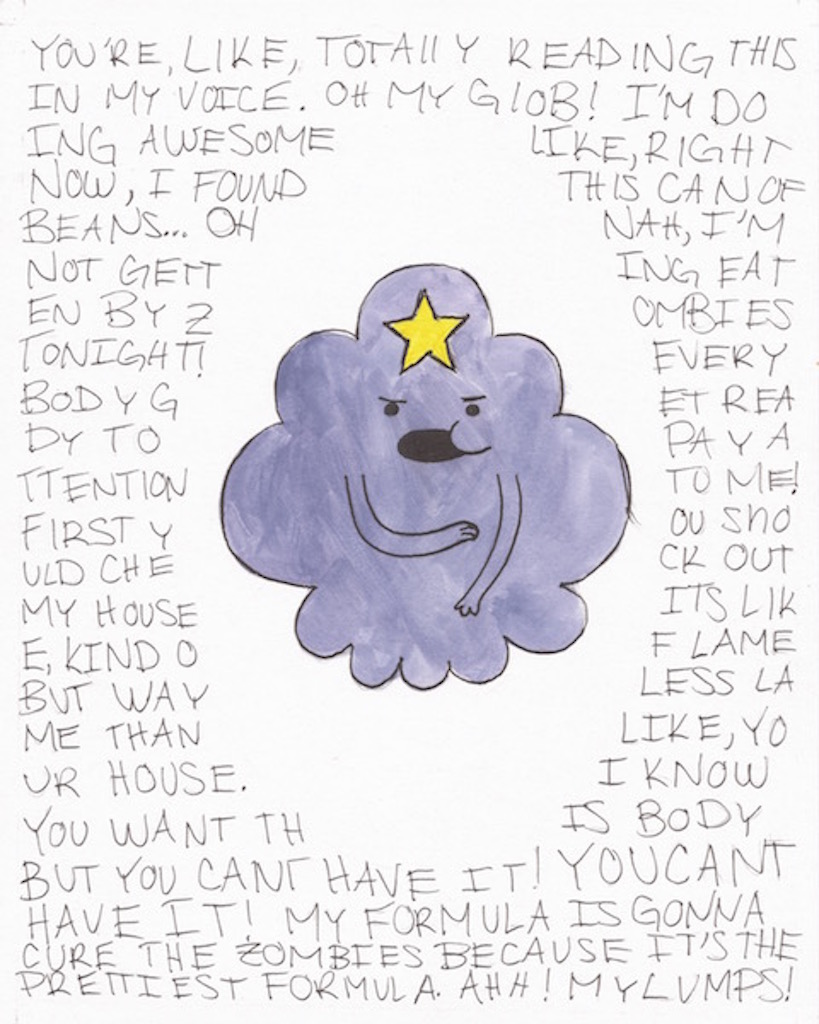 YOU'RE, LIKE, TOTALLY READING THIS
IN MY VOICE. OH MY GLOB! I'M DO
ING AWESOME LIKE, RIGHT
NOW, I FOUND THIS CAN OF
BEANS... OH NAH, I'M
NOT GETT ING EAT
EN BY Z OMBIES
TONIGHT! EVERY
BODY G ET REA
DY TO PAY A
TTENTION TO ME!
FIRST Y OU SHO
ULD CHE CK OUT
MY HOUSE ITS LIK
E, KIND O F LAME
BUT WAY LESS LA
ME THAN LIKE, YO
UR HOUSE. I KNOW
YOU WANT TH IS BODY
BUT YOU CANT HAVE IT! YOU CANT
HAVE IT! MY FORMULA IS GONNA
CURE THE ZOMBIES BECAUSE IT'S THE
PRETTIEST FORMULA. AHH! MY LUMPS!